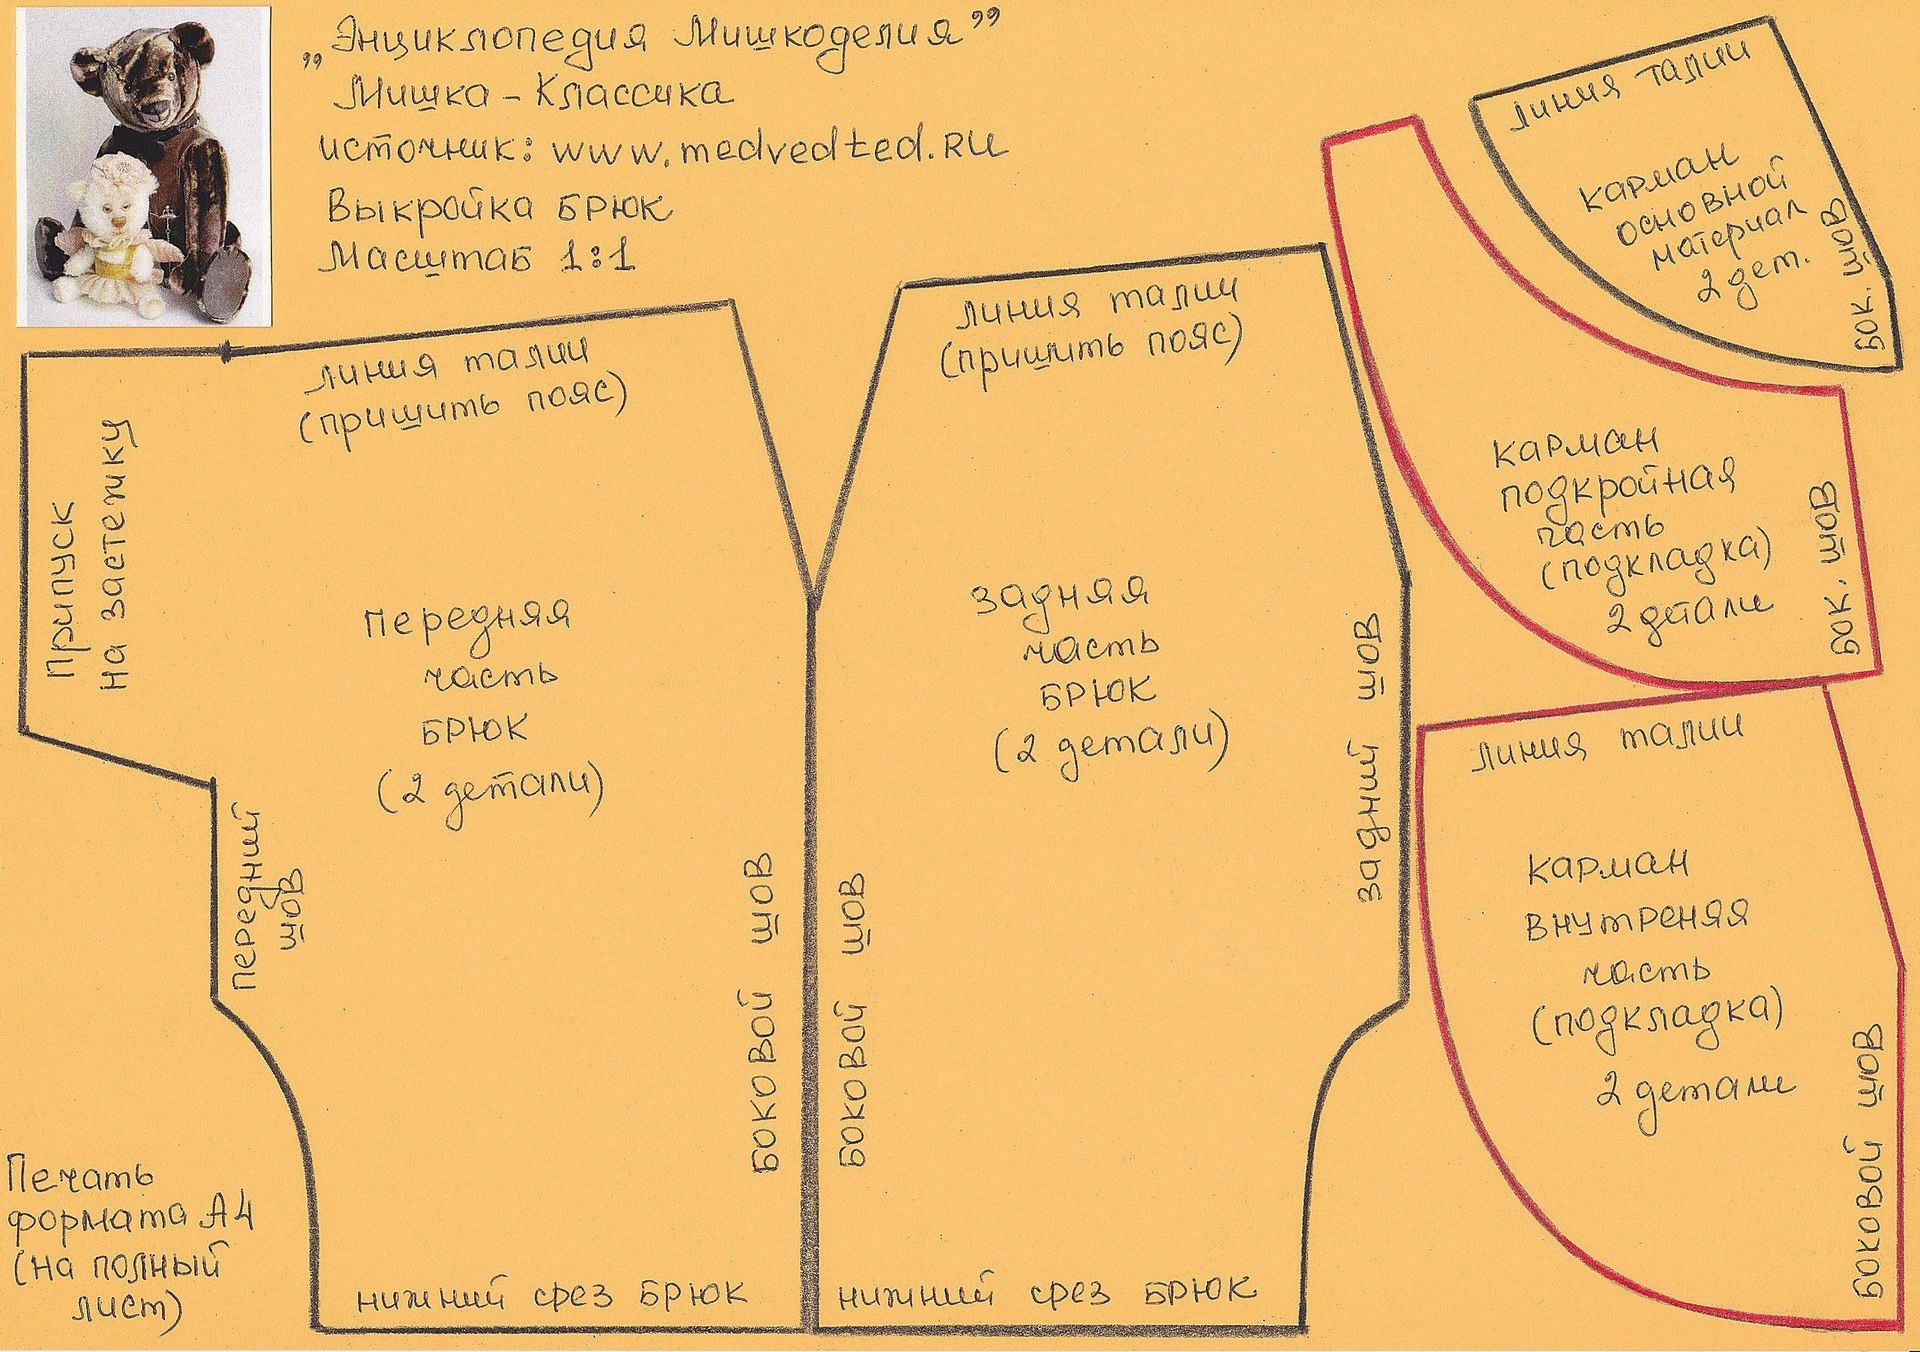 „Энциклопедия Мишкоделия”
Мишка - Классика
источник: www.medvedted.RU
Выкройка БРЮК
Масштаб 1:1
линия талии
(пришить пояс)
Припуск
на застежку
передняя
часть
БРЮК
(2 детали)
передний
шов
боковой шов
нижний срез БРЮК
Печать
формата А4
(на полный
лист)
линия талии
(пришить пояс)
задняя
часть
БРЮК
(2 детали)
задний шов
боковой шов
нижний срез БРЮК
линия талии
карман
основной
материал
2 дет.
бок. шов
карман
подкройная
часть
(подкладка)
2 детали
бок. шов
линия талии
карман
внутреняя
часть
(подкладка)
2 детали
боковой шов